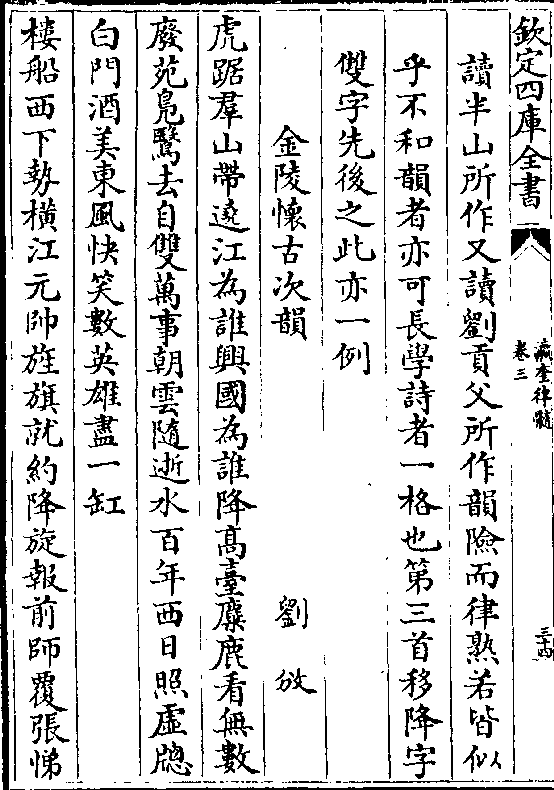 欽定四庫全書
瀛奎律髓
卷三
三十四
讀半山所作又讀劉貢父所作韻險而律熟若皆似
乎不和韻者亦可長學詩者一格也第三首移降字
雙字先後之此亦一例
金陵懷古次韻
劉攽
虎踞羣山帶遶江為誰興國為誰降高臺麋鹿看無數
廢苑鳬鷖去自雙萬事朝雲隨逝水百年西日照虛牎
白門酒美東風快笑數英雄盡一缸
樓船西下勢橫江元帥旌旗就約降旋報前師覆張悌